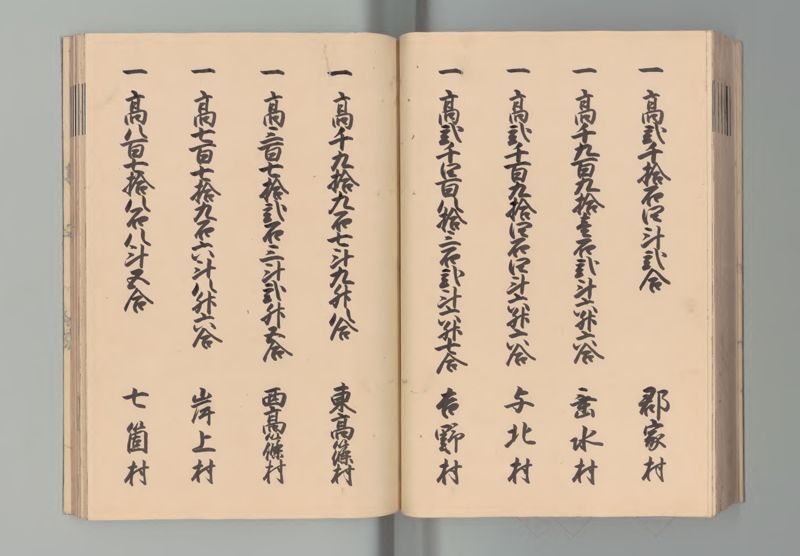 一 高弐千拾石四斗弐合 郡家村
一 高千九百九拾壱石弐斗六升六合 垂水村
一 高弐千百九拾四石四斗六升六合 与北村
一 高弐千四百八拾三石弐斗六升七合 吉野村
一 高千九拾九石七斗九升八合 東高篠村
一 高三百七拾弐石三斗弐升五合 西高篠村
一 高七百七拾九石六斗八升六合 岸上村
一 高八百七拾八石八斗五合 七箇村